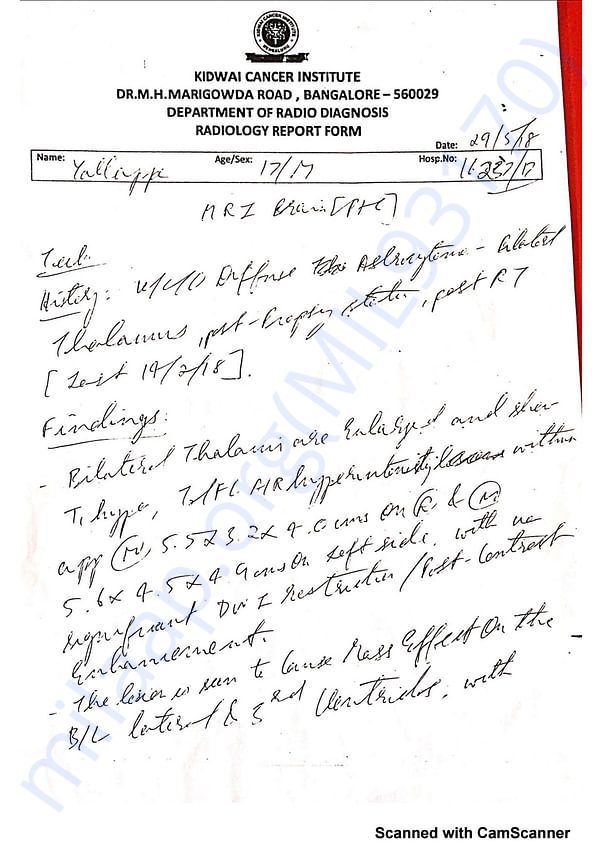 KIDWAI CANCER INSTITUTE
DR.M.H.MARIGOWDA ROAD , BANGALORE – 560029
DEPARTMENT OF RADIO DIAGNOSIS
RADIOLOGY REPORT FORM
Date: 29/5/18
Name: Yallappa Age/Sex: 17/M Hosp.No:
MRI Brain [P+C]
History: K/C/O Diffuse Astrocytoma - Bilateral
Thalamus, post-biopsy status, post RT
[Last 19/2/18].
Findings:
- Bilateral Thalami are Enlarged and show
T1 hypo, T2/FLAIR hyperintensity within
app 5.5 x 3.2 x 4.0 cms on (R) &
5.6 x 4.5 x 4.9 cms on left side. with no
significant DWI restriction / Post-Contrast
Enhancement.
- The lesion is seen to cause Mass Effect On the
B/L lateral & 3rd Ventricles. with
milaap.org(MIL93170)
Scanned with CamScanner